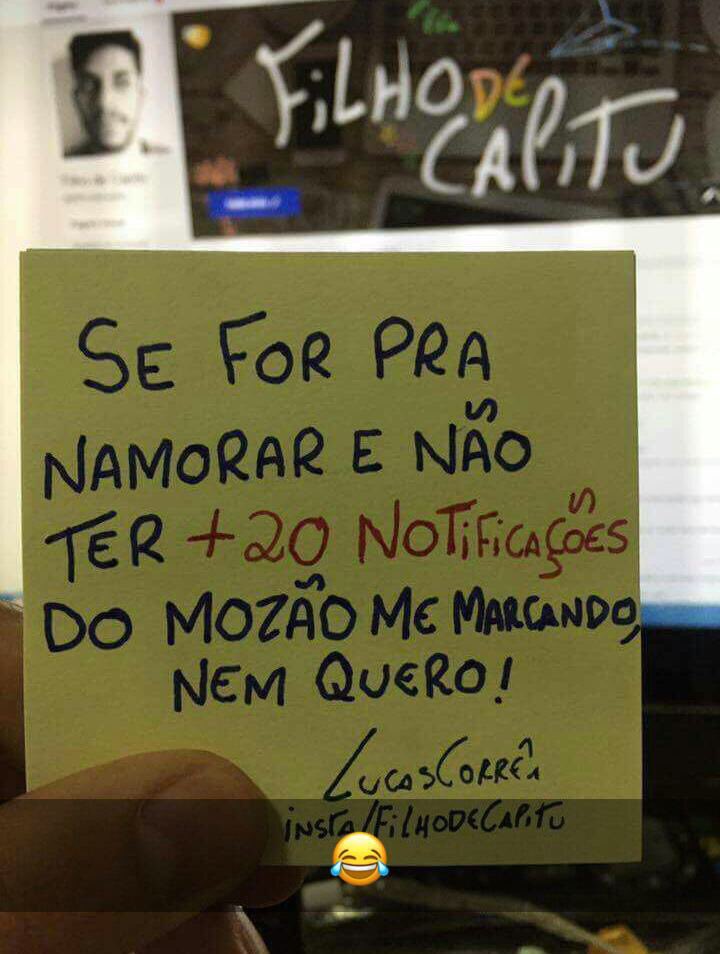 FILHO DE
CAPITU
SE FOR PRA
NAMORAR E NÃO
TER +20 NOTIFICAÇÕES
DO MOZÃO ME MARCANDO,
NEM QUERO!
LUCAS CORRÊA
INSTA/FILHODECAPITU